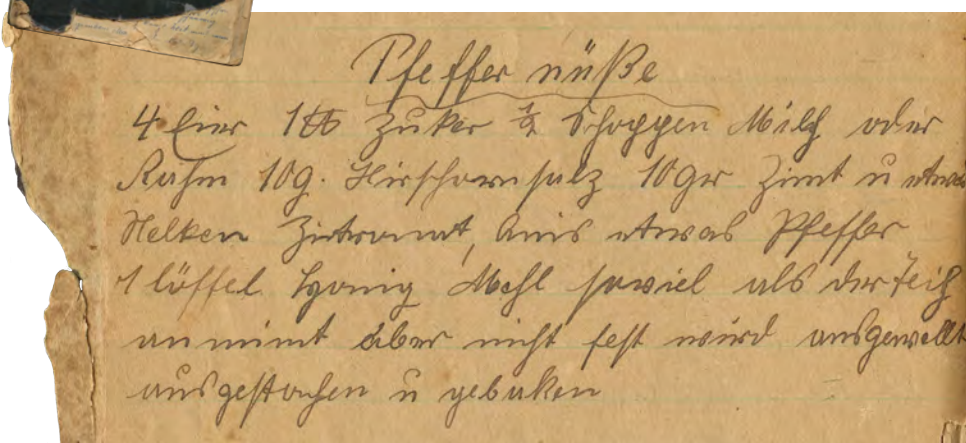 Pfeffer nüße
4 Eier 1 ℔ Zuker ½ Schoppen Milch oder
Rahm 10g. Hirschornsalz 10gr Zimt u etwas
Nelken Zitronat, Anis etwas Pfeffer
1 löffel Honig Mehl soviel als der Teig
an nimt aber nicht fest wird ausgewellt
ausgestochen u gebaken